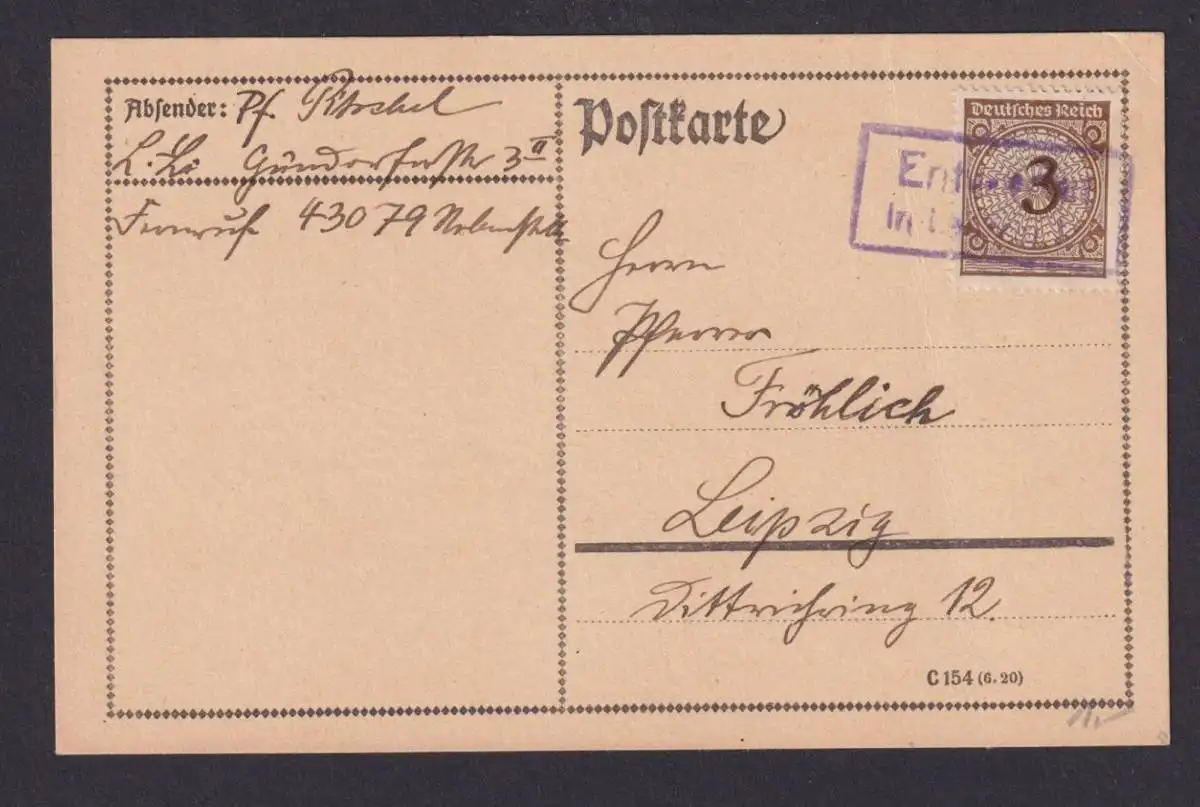 Absender: Pf.
L. Li Gündorferstr. 3 II
Fernruf 43079 Nebenstelle
Postkarte
Deutsches Reich
3
Herrn
Pfarrer
Fröhlich
Leipzig
Dittrichring 12.
C 154 (6.20)